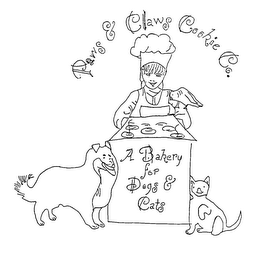 Paws & Claws Cookie Co.
A Bakery
for
Dogs &
Cats